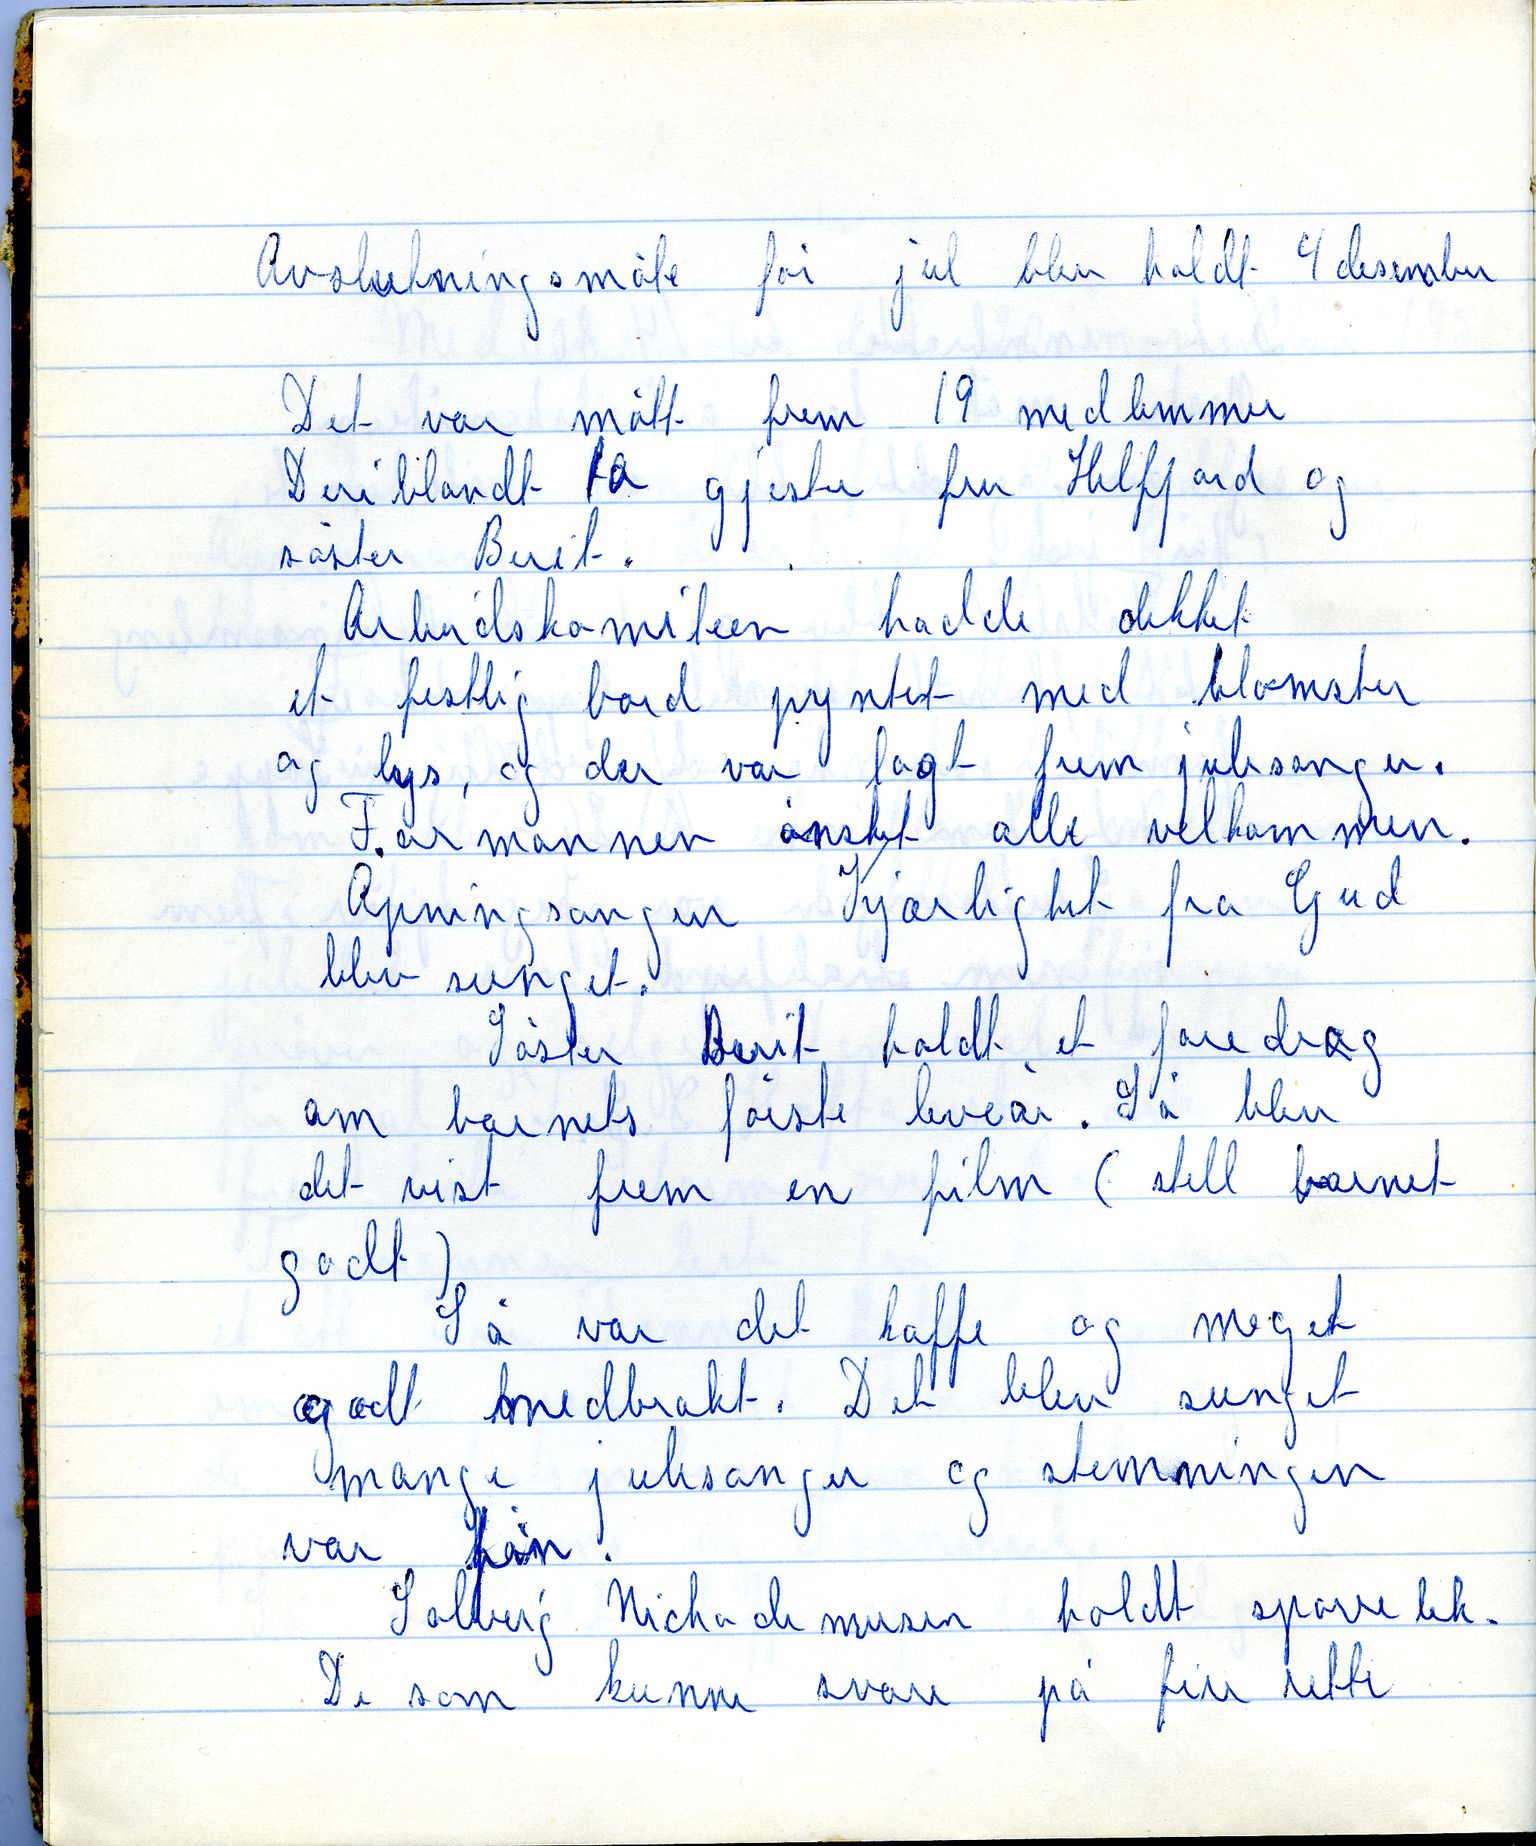 Avslutningsmøte før jul blev holdt 4 desember
Det var møtt frem 19 medlemmer
Deriblandt to gjester fru Helfjord og
søster Berit.
Arbeidskomiteen hadde dekket
et festlig bord pyntet med blomster
og lys, og der var lagt frem julesanger.
Formannen ønsket alle velkommen.
Åpningsangen Kjærlighet fra Gud
blev sunget.
Søster Berit holdt et foredrag
om barnets første leveår. Så blev
det vist frem en film ( stell barnet
godt )
Så var det kaffe og meget
godt medbrakt. Det blev sunget
mange julesanger og stemningen
var fin.
Solveig Nichodemusen holdt spørrelek.
De som kunne svare på fire rette